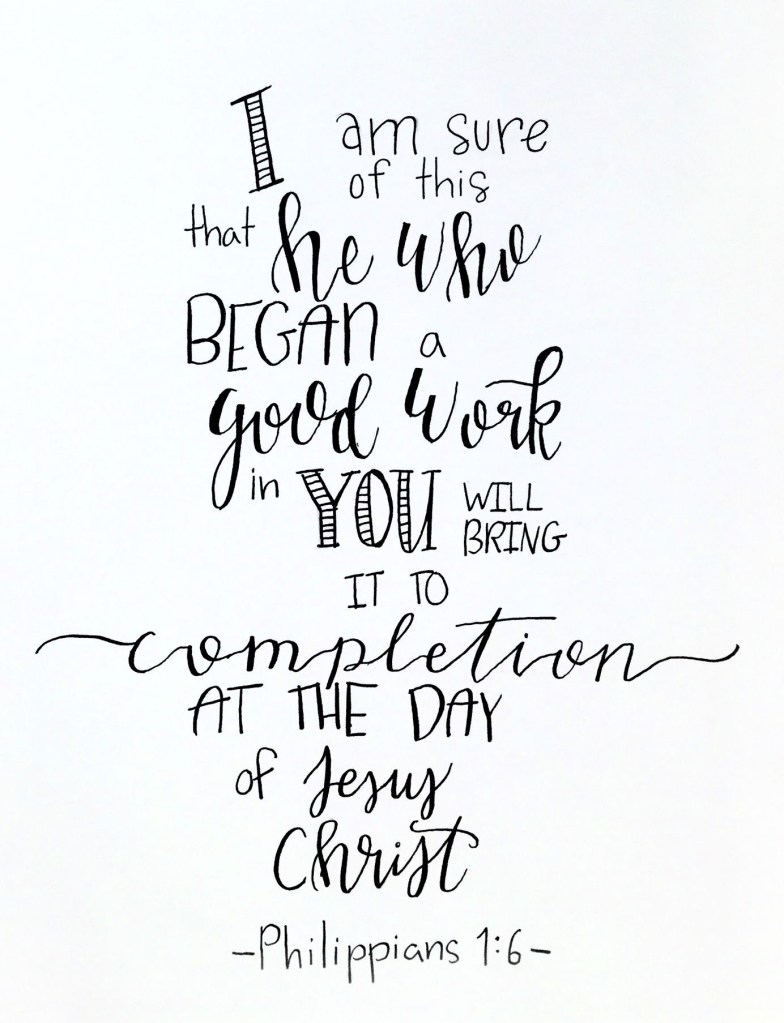 I am sure
of this
that he who
BEGAN a
good work
in YOU WILL
BRING
IT TO
completion
AT THE DAY
of Jesus
Christ
-Philippians 1:6-